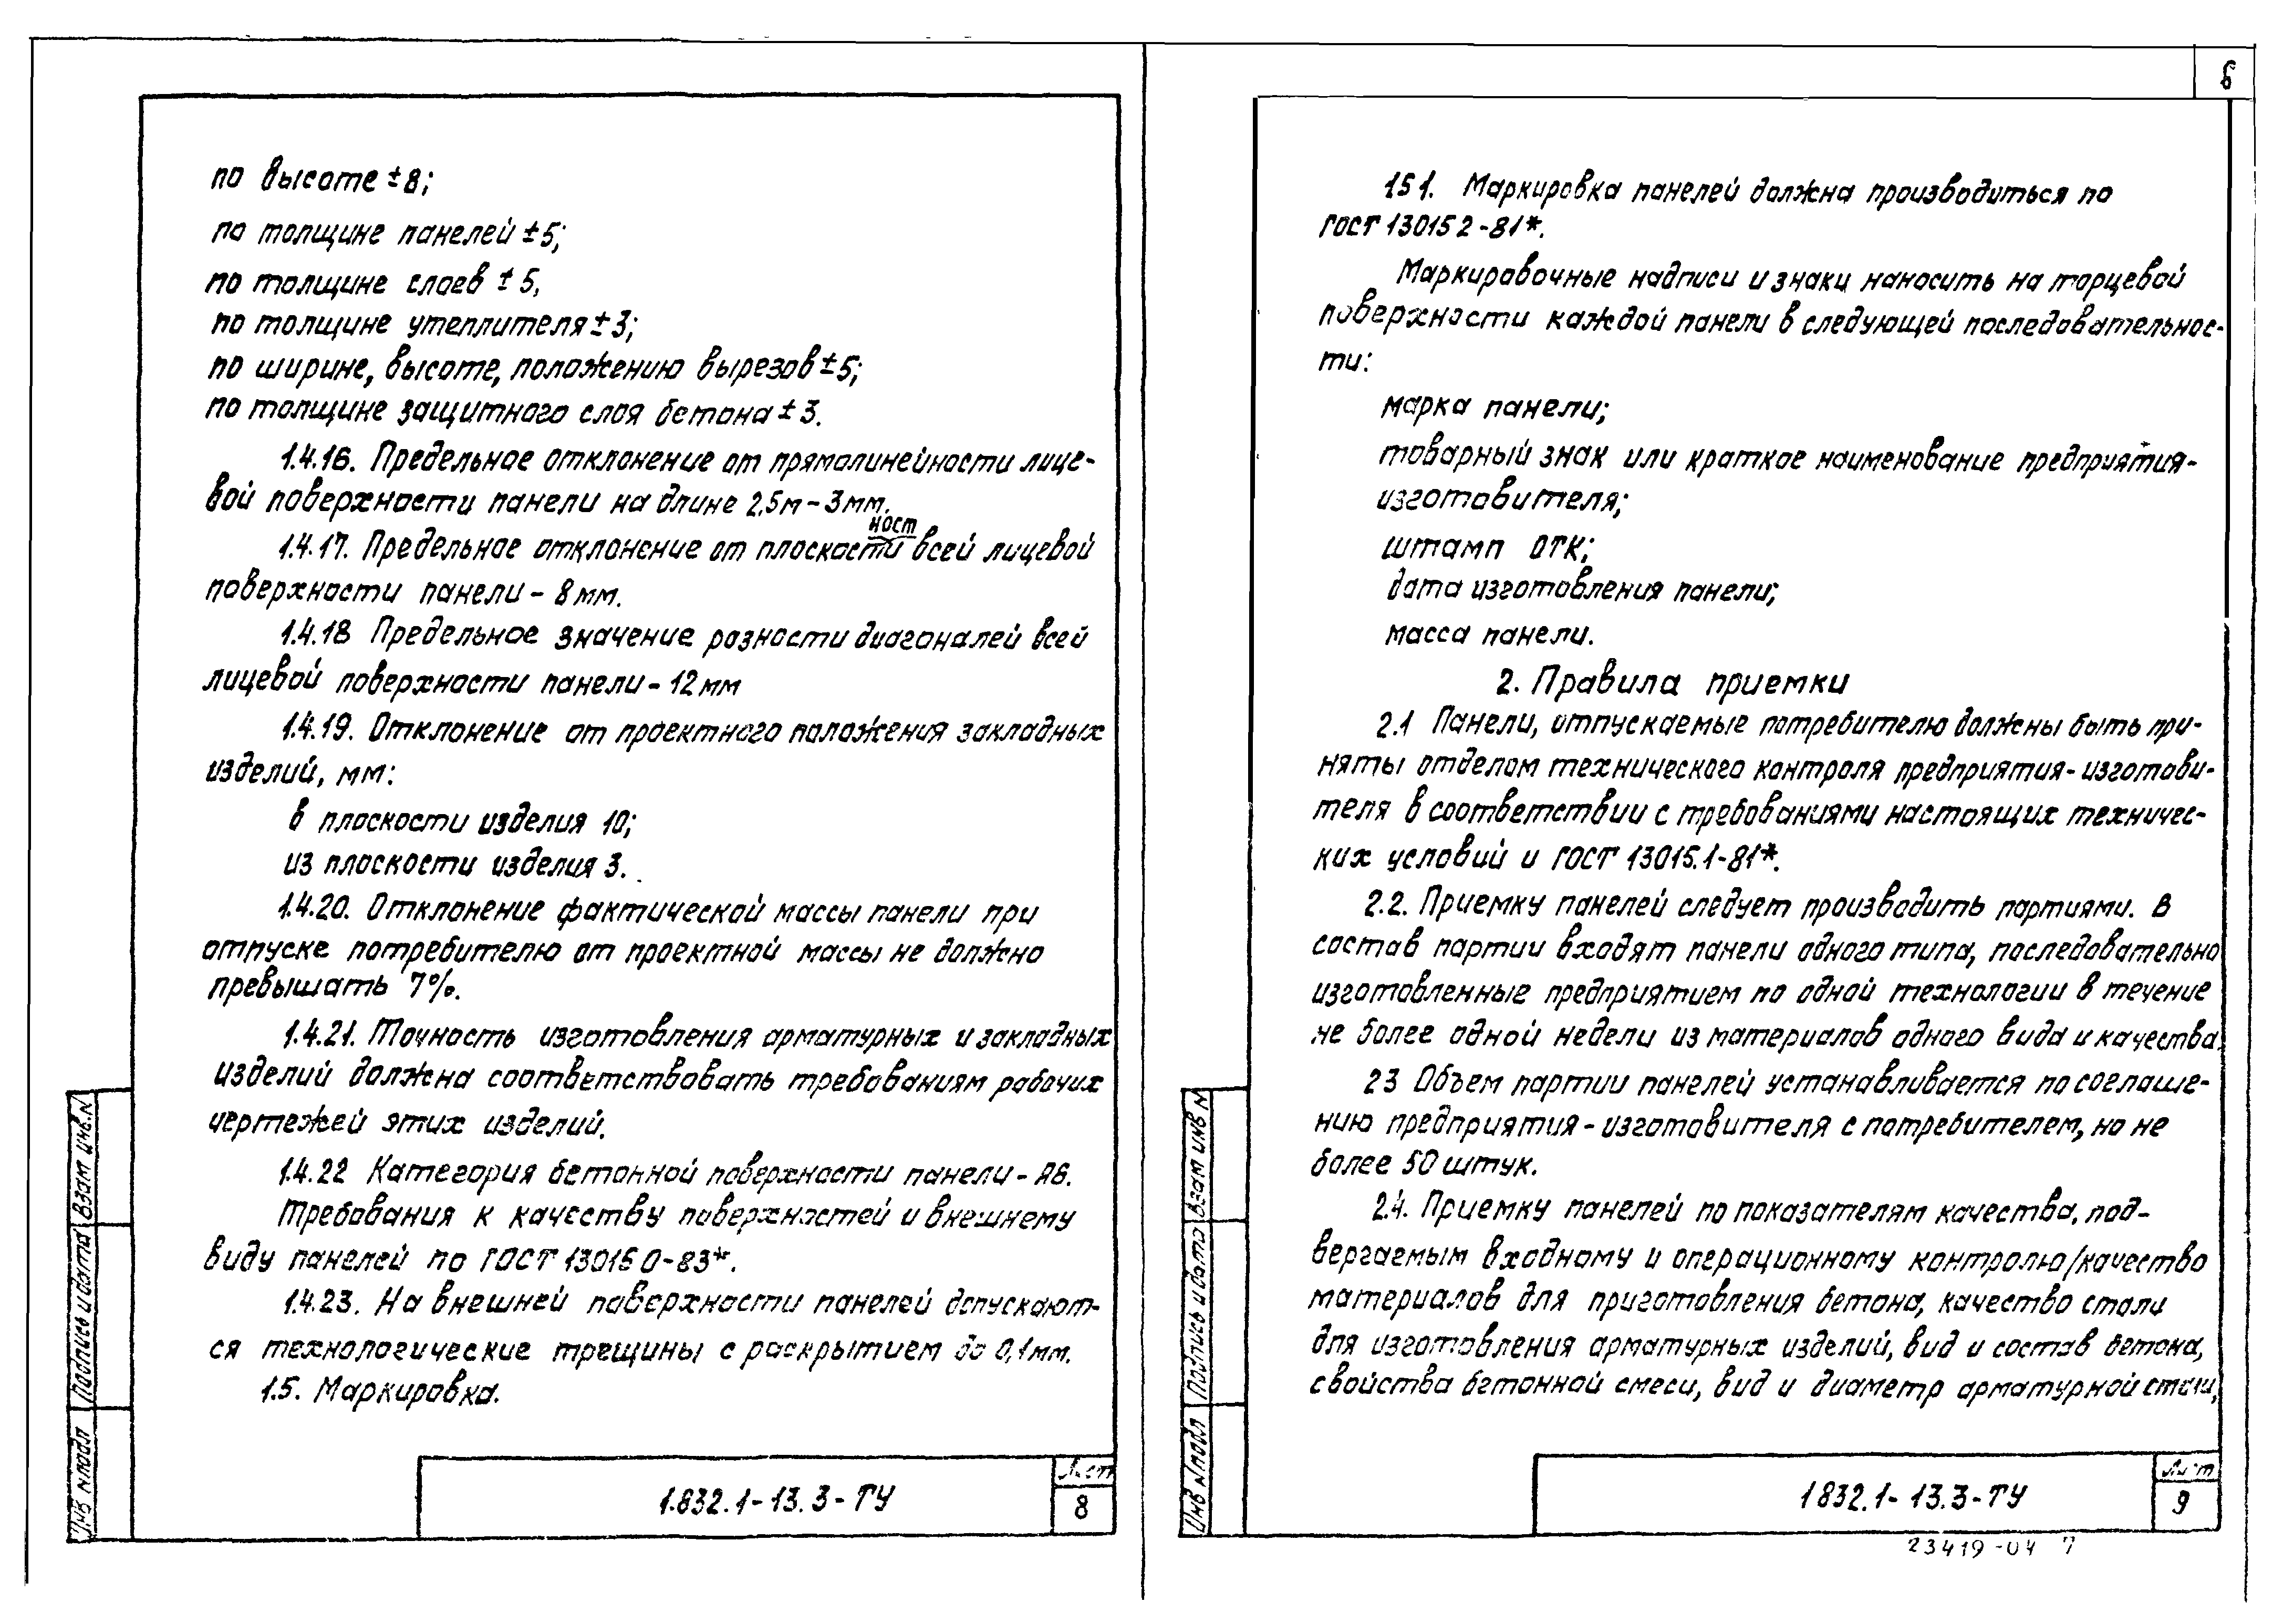 по высоте ±8;
по толщине панелей ±5;
по толщине слоев ± 5,
по толщине утеплителя ± 3;
по ширине, высоте, положению вырезов ±5;
по толщине защитного слоя бетона ± 3.
1.4.16. Предельное отклонение от прямолинейности лице-
вой поверхности панели на длине 2,5м – 3мм.
ност
1.4.17. Предельное отклонение от плоскости всей лицевой
поверхности панели – 8мм.
1.4.18 Предельное значение разности диагоналей всей
лицевой поверхности панели – 12мм
1.4.19. Отклонение от проектного положения закладных
изделий, мм:
в плоскости изделия 10;
из плоскости изделия 3.
1.4.20. Отклонение фактической массы панели при
отпуске потребителю от проектной массы не должно
превышать 7%.
1.4.21. Точность изготовления арматурных и закладных
изделий должна соответствовать требованиям рабочих
чертежей этих изделий.
1.4.22 Категория бетонной поверхности панели – А6.
Требования к качеству поверхностей и внешнему
виду панелей по ГОСТ 13015 0-83*.
1.4.23. На внешней поверхности панелей допускают-
ся технологические трещины с раскрытием до 0,1мм.
1.5. Маркировка.
Взам инв.N
Подпись и дата
Инв N подл
1.832.1-13.3-ТУ
Лист
8
6
151. Маркировка панелей должна производиться по
ГОСТ 13015 2-81*.
Маркировочные надписи и знаки наносить на торцевой
поверхности каждой панели в следующей последовательнос-
ти:
марка панели;
товарный знак или краткое наименование предприятия-
изготовителя;
штамп ОТК;
дата изготовления панели;
масса панели.
2. Правила приемки
2.1 Панели, отпускаемые потребителю должны быть при-
няты отделом технического контроля предприятия-изготови-
теля в соответствии с требованиями настоящих техничес-
ких условий и ГОСТ 13015.1-81*.
2.2. Приемку панелей следует производить партиями. В
состав партии входят панели одного типа, последовательно
изготовленные предприятием по одной технологии в течение
не более одной недели из материалов одного вида и качества.
23 Объем партии панелей устанавливается по соглаше-
нию предприятия-изготовителя с потребителем, но не
более 50 штук.
2.4. Приемку панелей по показателям качества, под-
вергаемым входному и операционному контролю/качество
материалов для приготовления бетона, качество стали
для изготовления арматурных изделий, вид и состав бетона,
свойства бетонной смеси, вид и диаметр арматурной стали,
Взам инв N
Подпись и дата
Инв N подл
1832.1-13.3-ТУ
Лист
9
23419-04 7